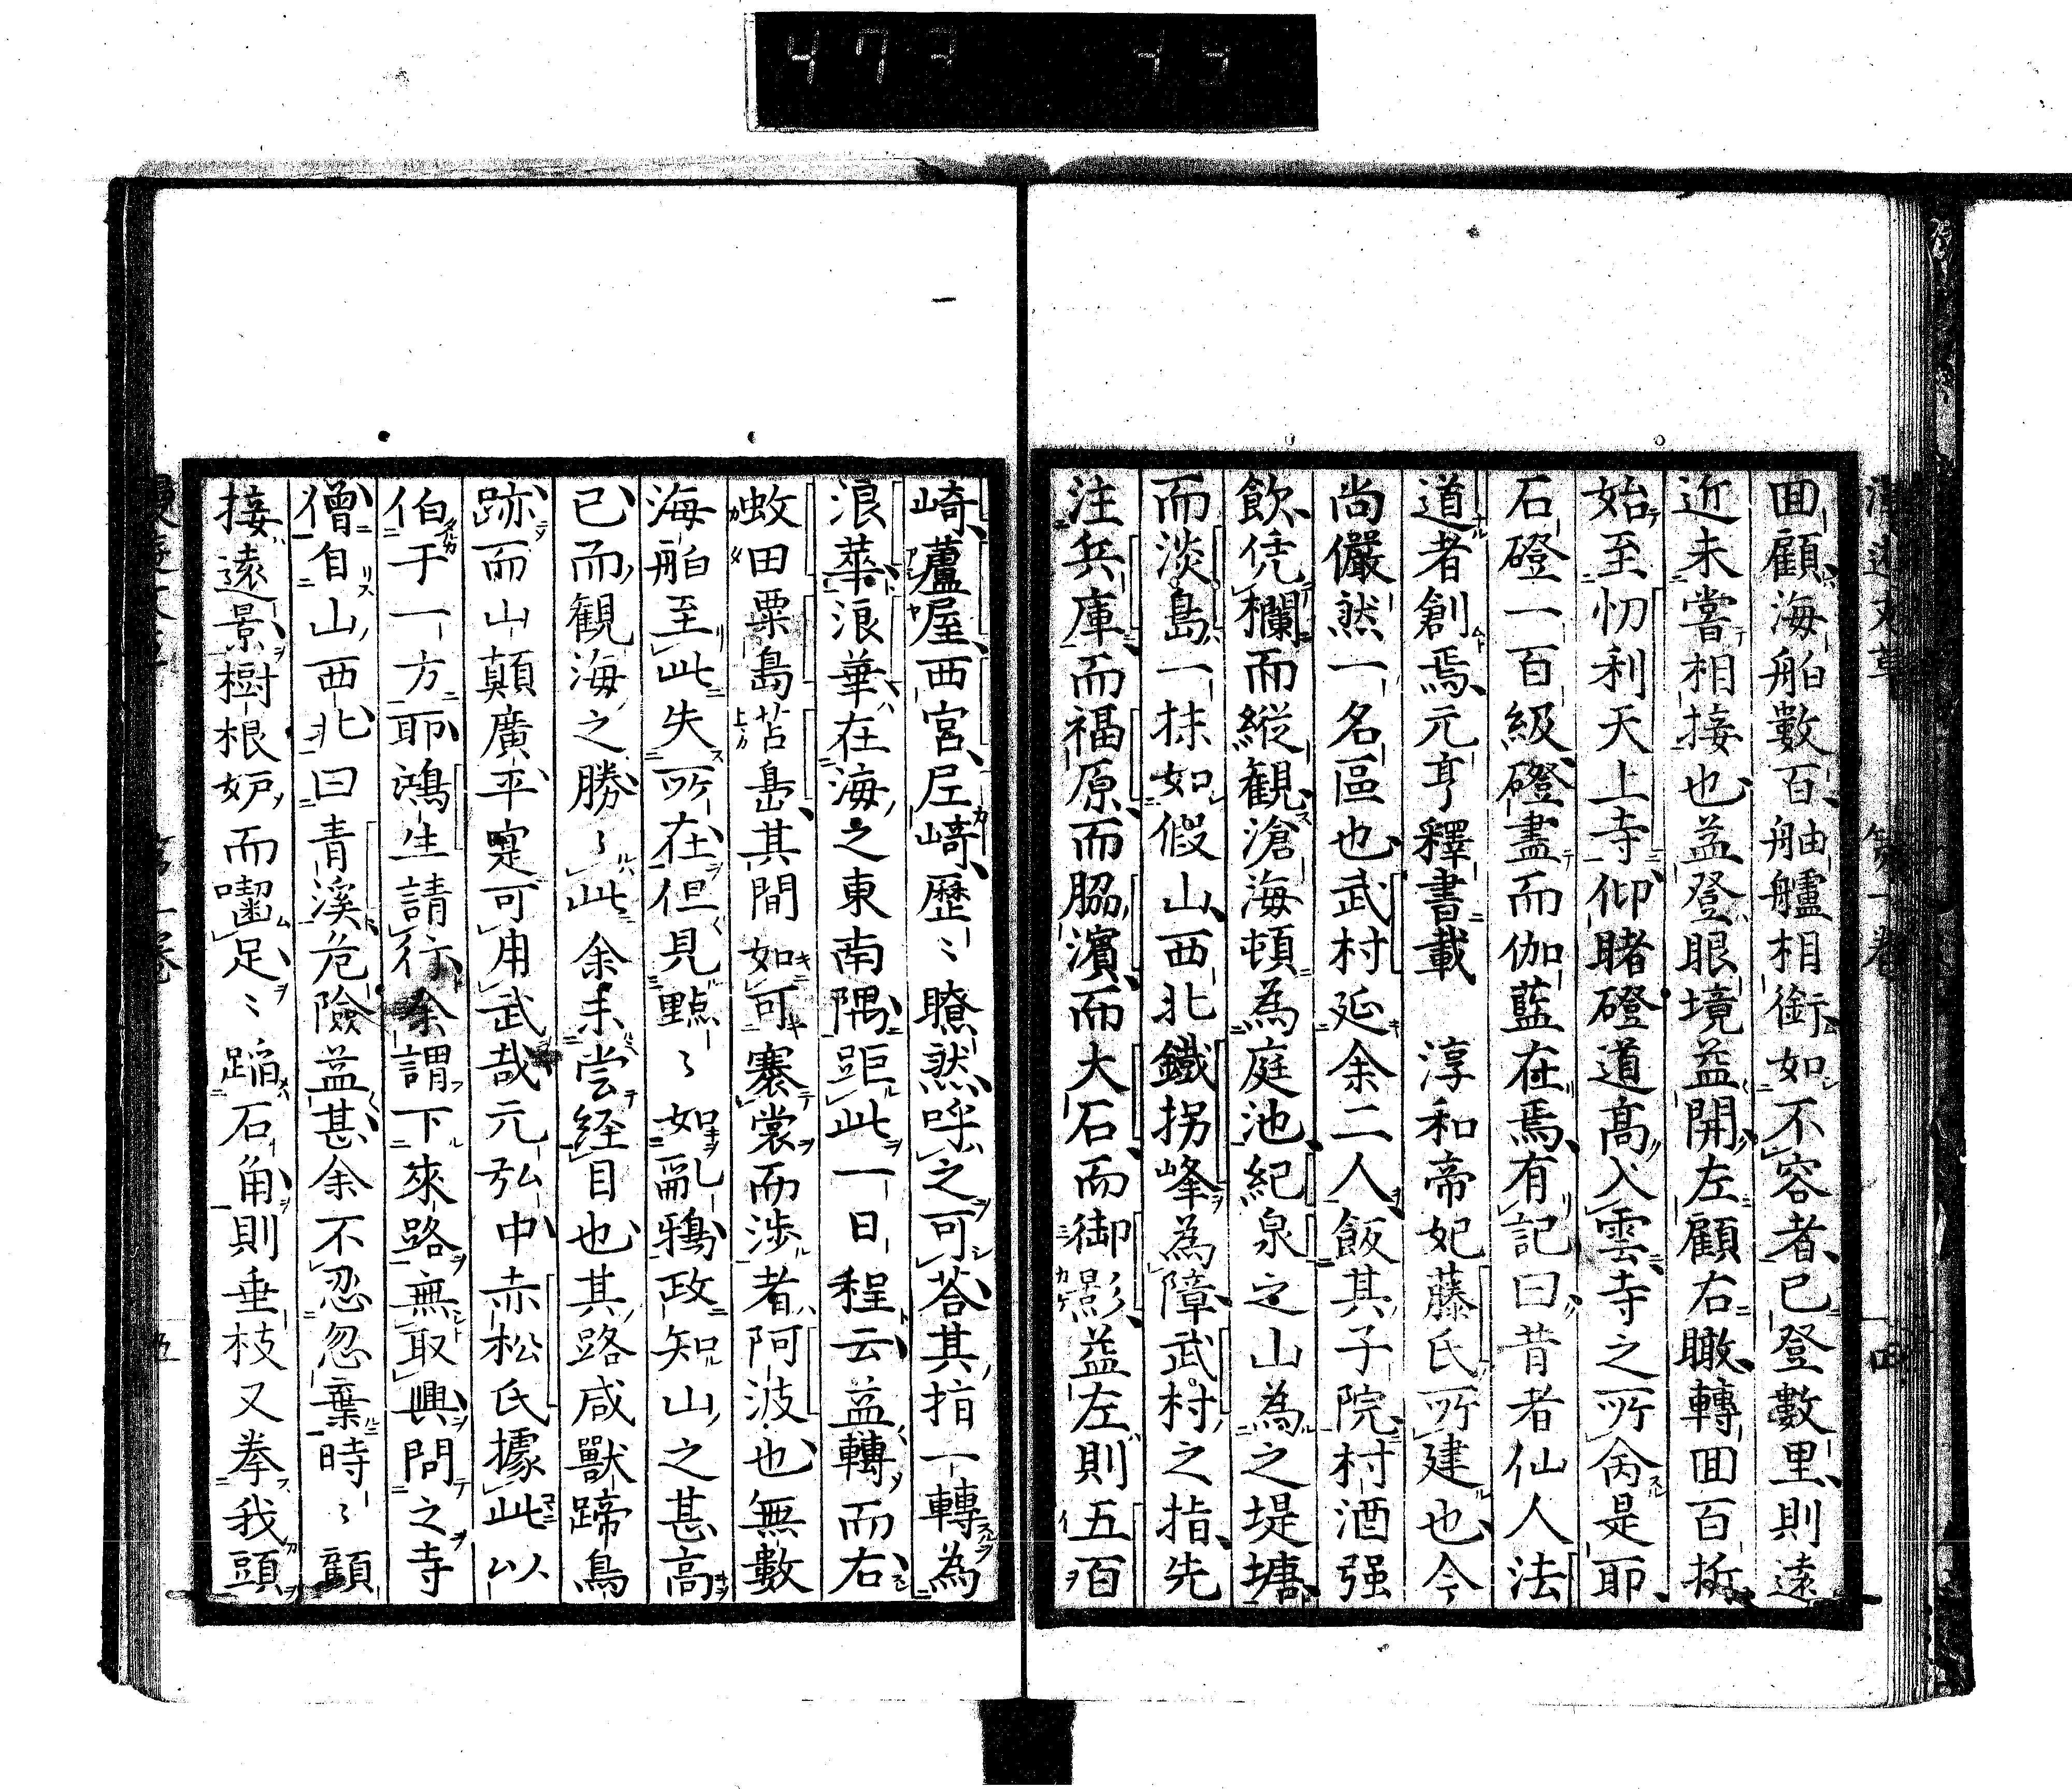 回顧海舶數百舳艫相銜如不容者已登數里則遠
近未嘗相接也益登眼境益開左顧右瞰轉回百折
始至忉利天上寺仰睹磴道高入雲寺之所肏是耶
石磴一百級磴盡而伽藍在焉有記曰昔者仙人法
道者創焉元亨釋書載 淳和帝妃藤氏所建也今
尚儼然一名區也武村延余二人飯其子院村酒强
飲凭欄而縱観滄海頓為庭池紀泉之山為之堤塘
而淡島一抹如假山西北鐵拐峰為障武村之指先
注兵庫而福原而脇濱而大石而御影益左則五百
崎蘆屋西宮尼崎歷〻瞭然呼之可荅其指一轉為
浪華浪華在海之東南隅距此一日程云益轉而右
蚊田粟島苫島其間如可褰裳而渉者阿波也無數
海舶至此失所在但見點〻如亂鴉政知山之甚高
已而観海之勝〻此余未尝経目也其路咸獸蹄鳥
跡而山顛廣平寔可用武哉元弘中赤松氏據此以
伯于一方耶鴻生請行余謂下來路無取興問之寺
僧自山西北曰青溪危險益甚余不忍忽棄時〻顧
接遠景樹根妒而囓足〻蹈石角則垂枝又拳我頭
四
五